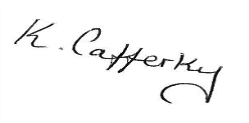 K. Cafferky